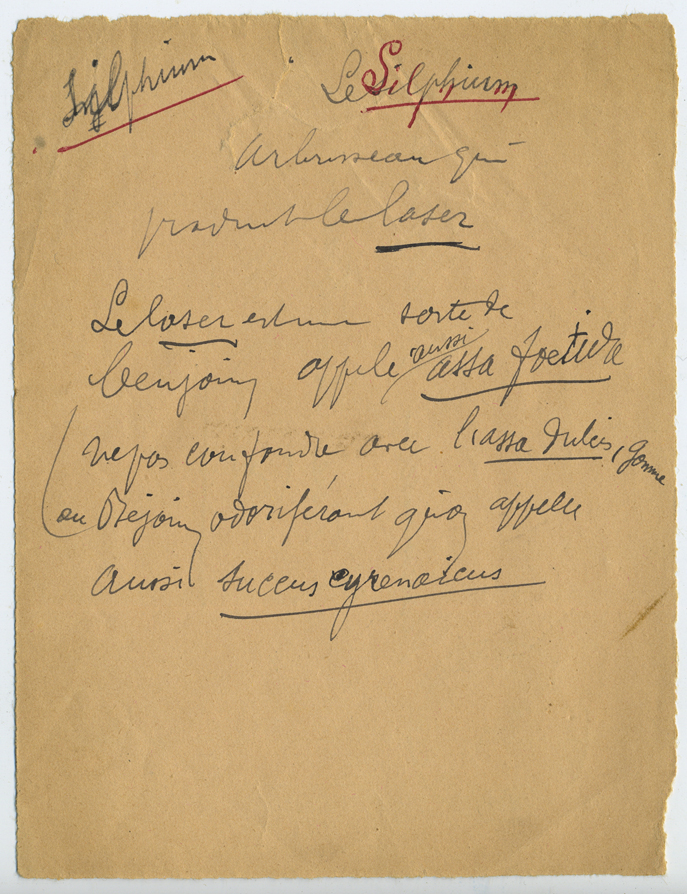 Silphium
Le Silphium
Arbrisseau qui
produit le laser
Le laser est une sorte de
benjoin appelé aussi assa foetida
ne pas confondre avec l'assa dulcis, gomme
ou Béjoin odoriférant qu'on appelle
aussi succus cyrenaicus